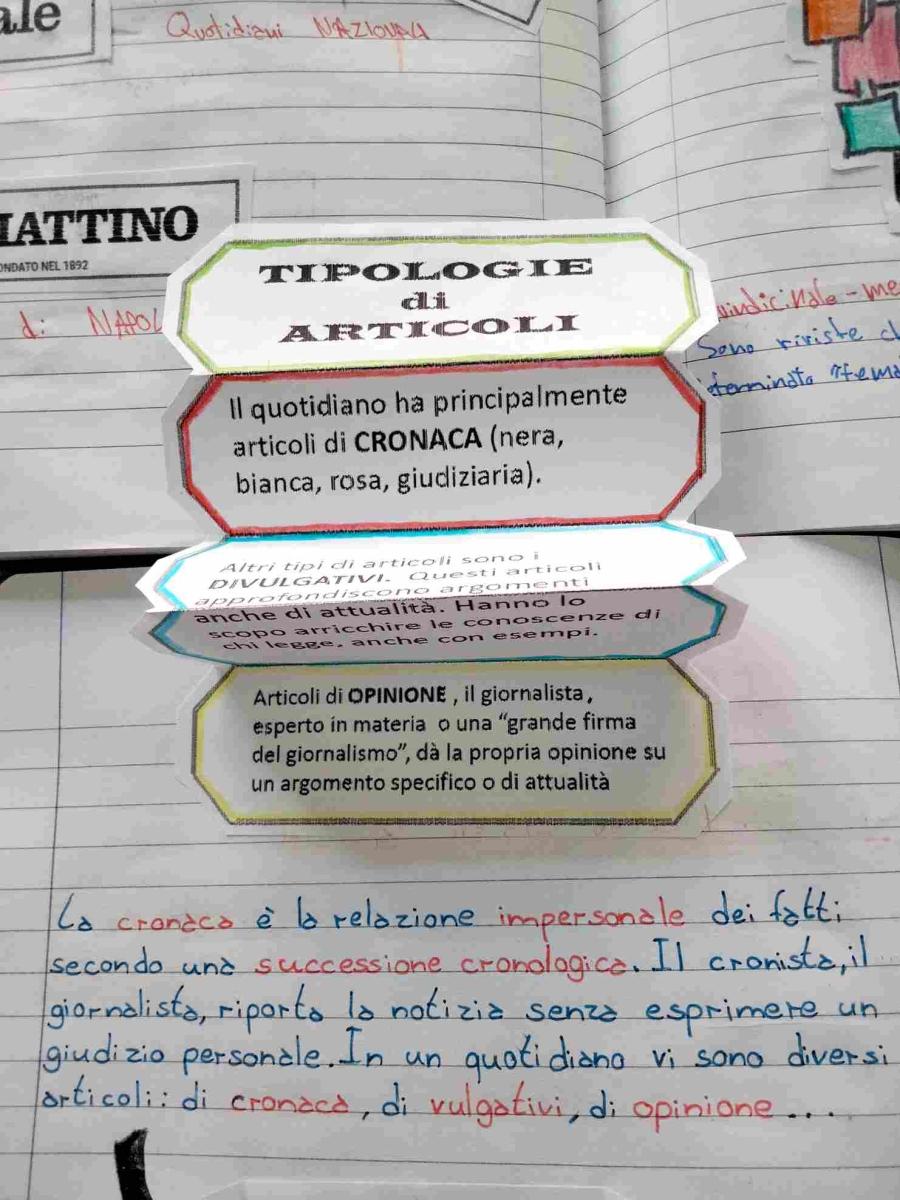 ale
Quotidiani NAZIONALI
MATTINO
FONDATO NEL 1892
di NAPOL
TIPOLOGIE
di
ARTICOLI
Il quotidiano ha principalmente
articoli di CRONACA (nera,
bianca, rosa, giudiziaria).
Altri tipi di articoli sono i
DIVULGATIVI. Questi articoli
approfondiscono argomenti
anche di attualità. Hanno lo
scopo arricchire le conoscenze di
chi legge, anche con esempi.
Articoli di OPINIONE , il giornalista,
esperto in materia o una “grande firma
del giornalismo”, dà la propria opinione su
un argomento specifico o di attualità
uindicinale - me
Sono riviste
terminata
La cronaca è la relazione impersonale dei fatti
secondo una successione cronologica. Il cronista, il
giornalista, riporta la notizia senza esprimere un
giudizio personale. In un quotidiano vi sono diversi
articoli: di cronaca, di vulgativi, di opinione ...